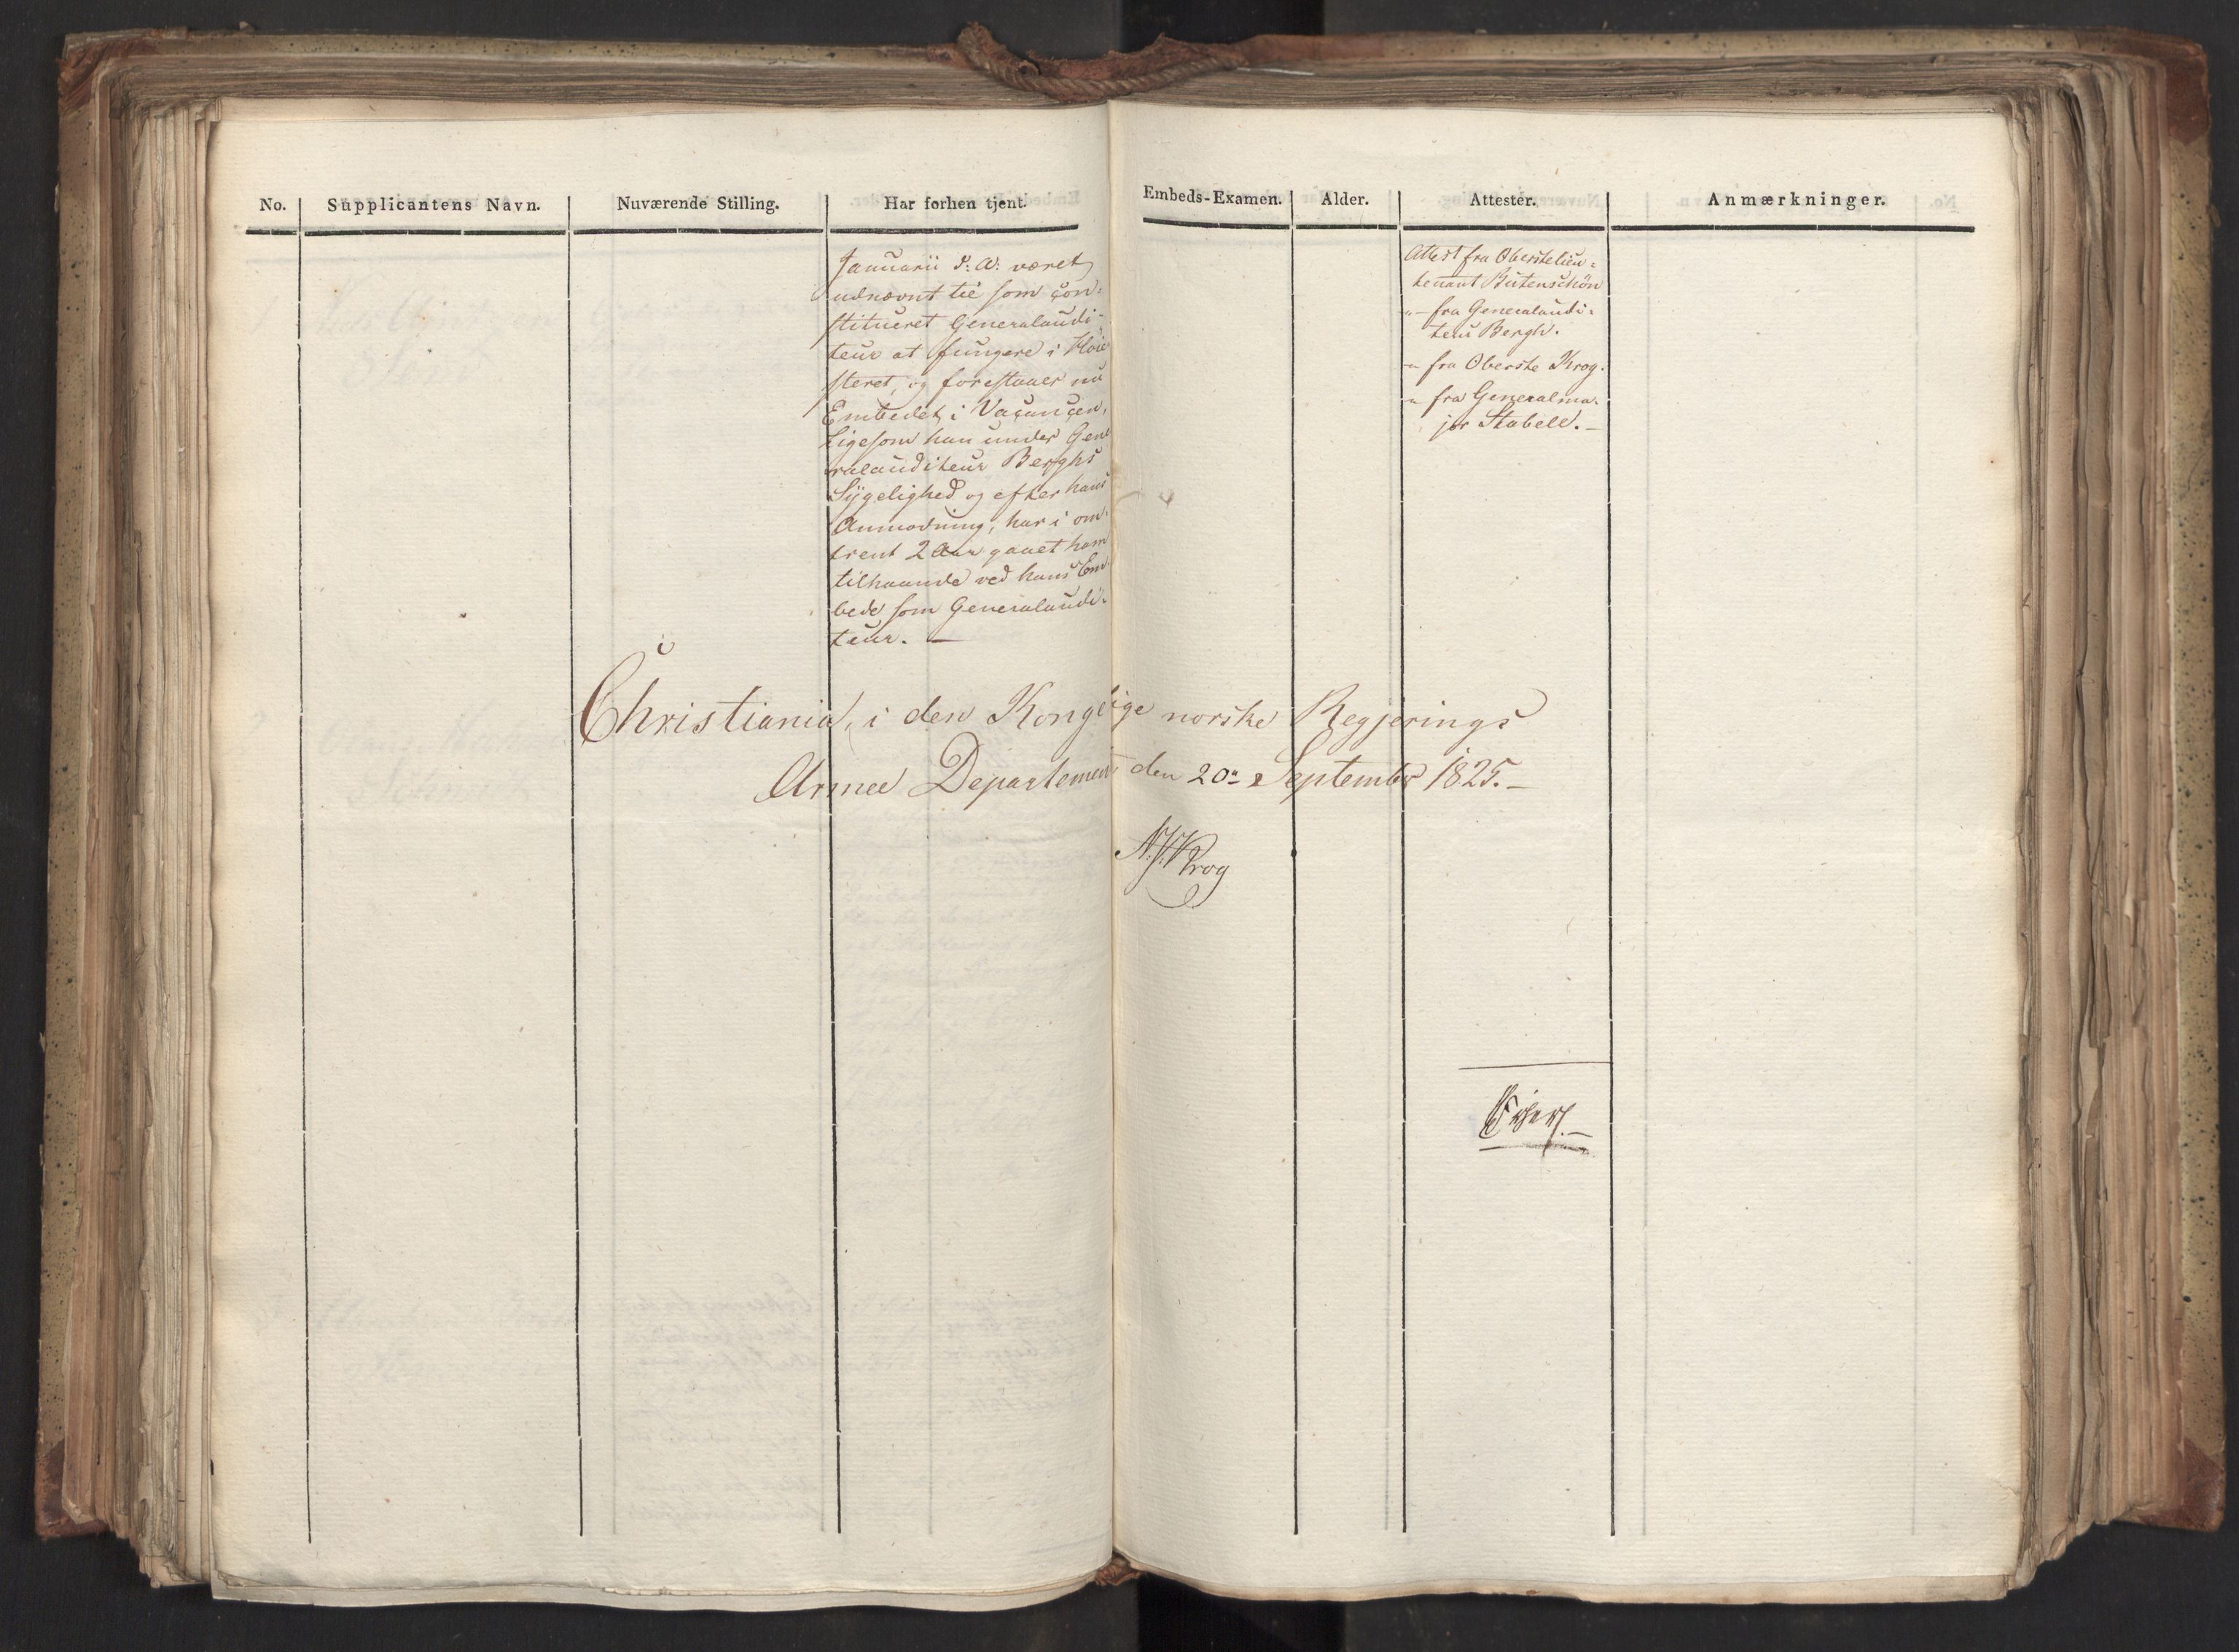 No. Supplicantens Navn. Nuværende Stilling. Har forhen tjent.
Januarii d: A: været
udnævnt til som con=
stitueret Generalaudi=
teur at fungere i Høie
steret, og forestaaer nu
Embedet i Vacancen,
Ligesom han under Gene
ralauditeur Berghs
Sygelighed og efter hans
Anmodning, har i om=
trent 2 Aar gaaet ham
tilhaande ved hans Em=
bede som Generalaudi=
teur. —
Embeds-Examen. Alder. Attester. Anmærkninger.
Attest fra Oberstelieu=
tenant Butenschön
"— fra Generalaudi=
teur Bergh.
" fra Oberste Krog.
" fra Generalma=
jor Stabell. —
Christiania, i den Kongelige norske Regjerings
Armee Departement den 20de September 1825. —
Krog